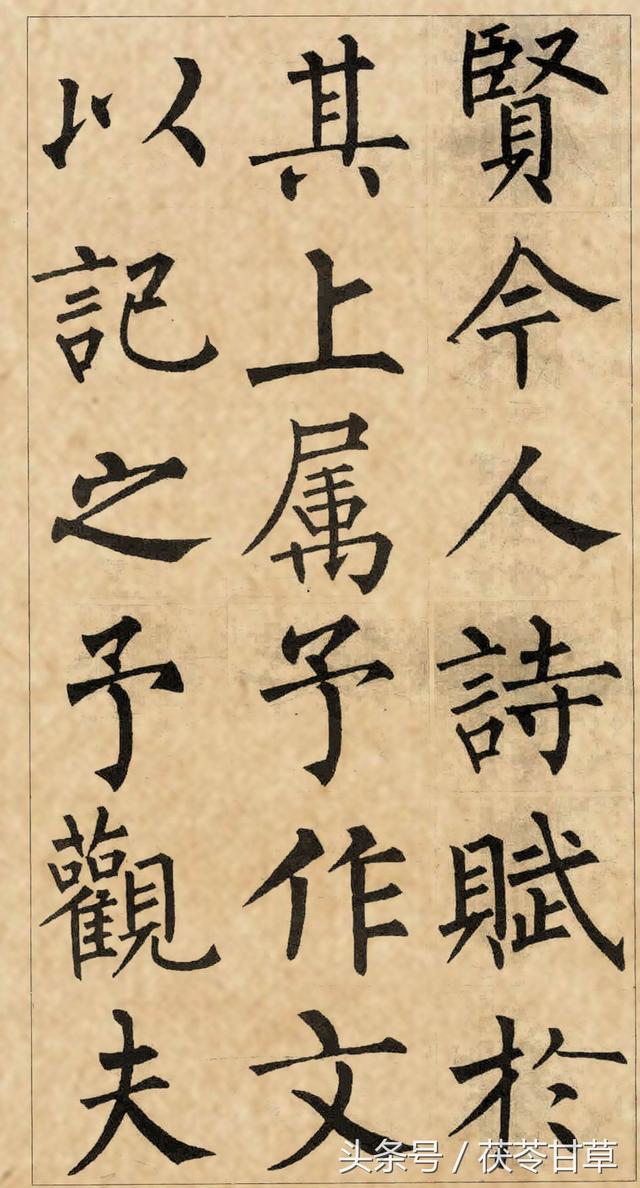 賢今人詩賦於
其上属予作文
以記之予觀夫
头条号 / 茯苓甘草